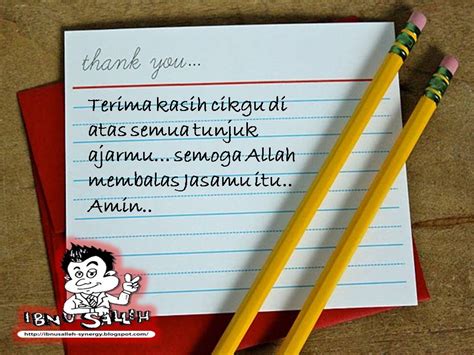 thank you...
Terima kasih cikgu di
atas semua tunjuk
ajarmu... semoga Allah
membalas Jasamu itu..
Amin..
IBNU SALLEH
http://ibnusalleh-synergy.blogspot.com/